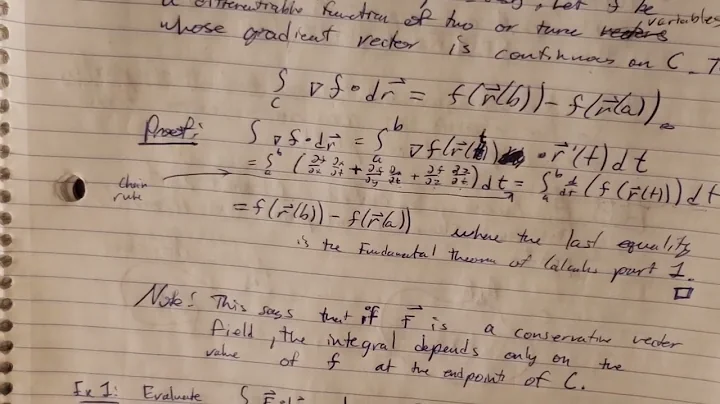 a differentiable function of two or three variables
whose gradient vector is continuous on C. T
∫_C ∇f • dr⃗ = f(r⃗(b)) - f(r⃗(a)).
Proof: ∫ ∇f • dr⃗ = ∫_a^b ∇f(r⃗(t)) • r⃗'(t) dt
chain rule = ∫_a^b (∂f/∂x ∂x/∂t + ∂f/∂y ∂y/∂t + ∂f/∂z ∂z/∂t) dt = ∫_a^b d/dt (f(r⃗(t))) dt
= f(r⃗(b)) - f(r⃗(a)) where the last equality
is the Fundamental theorem of Calculus part 1.
Note: This says that if F⃗ is a conservative vector
field, the integral depends only on the
value of f at the endpoints of C.
Ex 1: Evaluate ∫